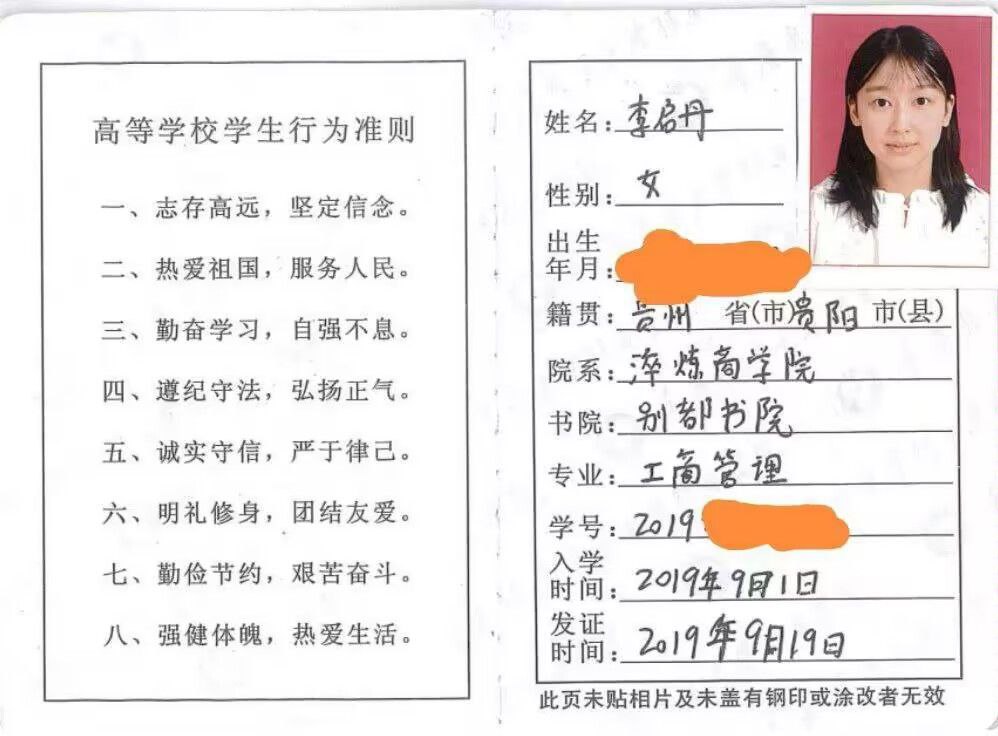 高等学校学生行为准则
一、志存高远，坚定信念。
二、热爱祖国，服务人民。
三、勤奋学习，自强不息。
四、遵纪守法，弘扬正气。
五、诚实守信，严于律己。
六、明礼修身，团结友爱。
七、勤俭节约，艰苦奋斗。
八、强健体魄，热爱生活。
姓名：李启丹
性别：女
出生
年月：
籍贯：贵州 省(市)贵阳 市(县)
院系：淬炼商学院
书院：别都书院
专业：工商管理
学号：2019
入学
时间：2019年9月1日
发证
时间：2019年9月19日
此页未贴相片及未盖有钢印或涂改者无效